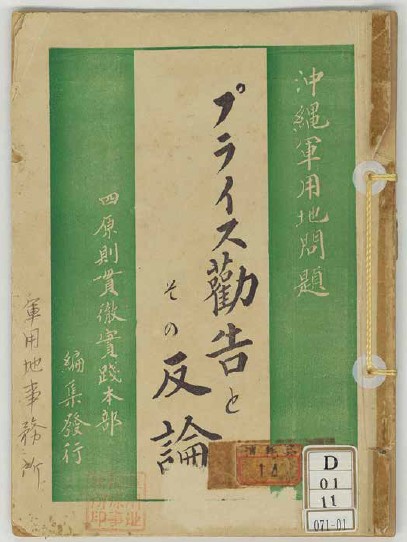 沖縄軍用地問題
プライス勸告と
その
反論
四原則貫徹實践本部
編集發行
軍用地事務所
14
D
01
11
071-01